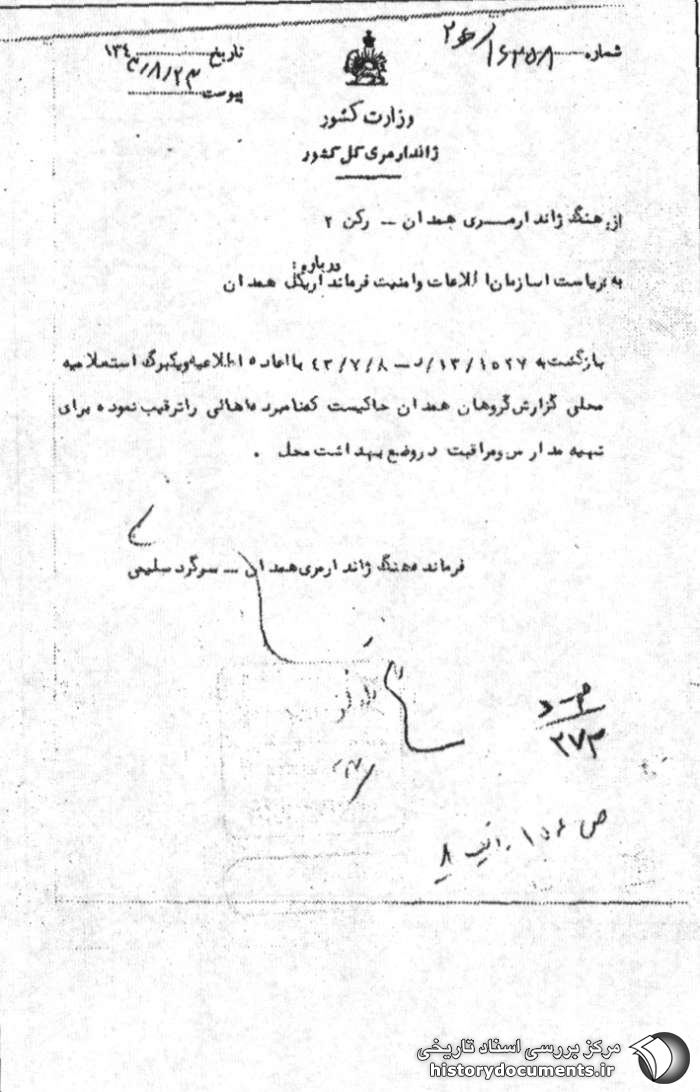 شماره ۲۶/۱۶۳۵۸
تاریخ ۱۳۴۳/۸/۲۳
پیوست
وزارت کشور
ژاندارمری کل کشور
از: هنگ ژاندارمری همدان – رکن ۲
به ریاست سازمان اطلاعات و امنیت فرمانداریکل همدان
درباره:
بازگشت به ۱۵۲۷/۱۳/د – ۴۳/۷/۸ با اعاده اطلاعیه و یکبرگ استعلامیه
محلی گزارش گروهان همدان حاکیست که نامبرده اهالی را ترغیب نموده برای
تهیه مدارس و مراقبت در وضع بهداشت محل .
فرمانده هنگ ژاندارمری همدان – سرگرد سلیمی
۲۷۳
مرکز بررسی اسناد تاریخی
historydocuments.ir